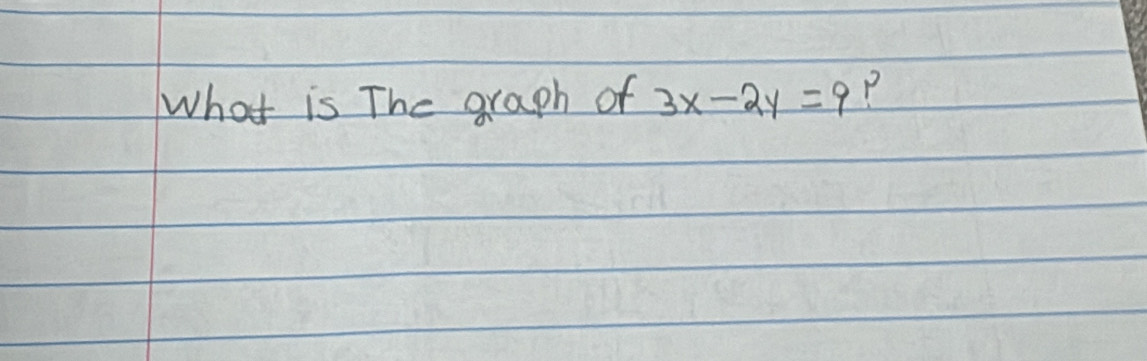 What is The graph of 3x-2y=9?